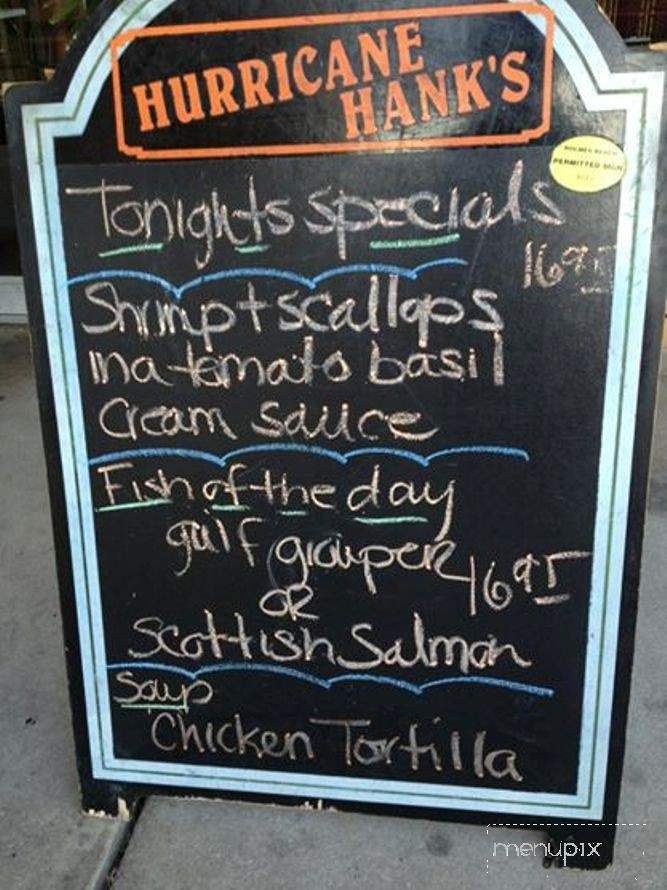 HURRICANE
HANK'S
PERMITTED SIGN
Tonights specials
16.95
Shrimp + scallops
in a tomato basil
cream sauce
Fish of the day
gulf grouper 16.95
OR
Scottish Salmon
Soup
Chicken Tortilla
menupix